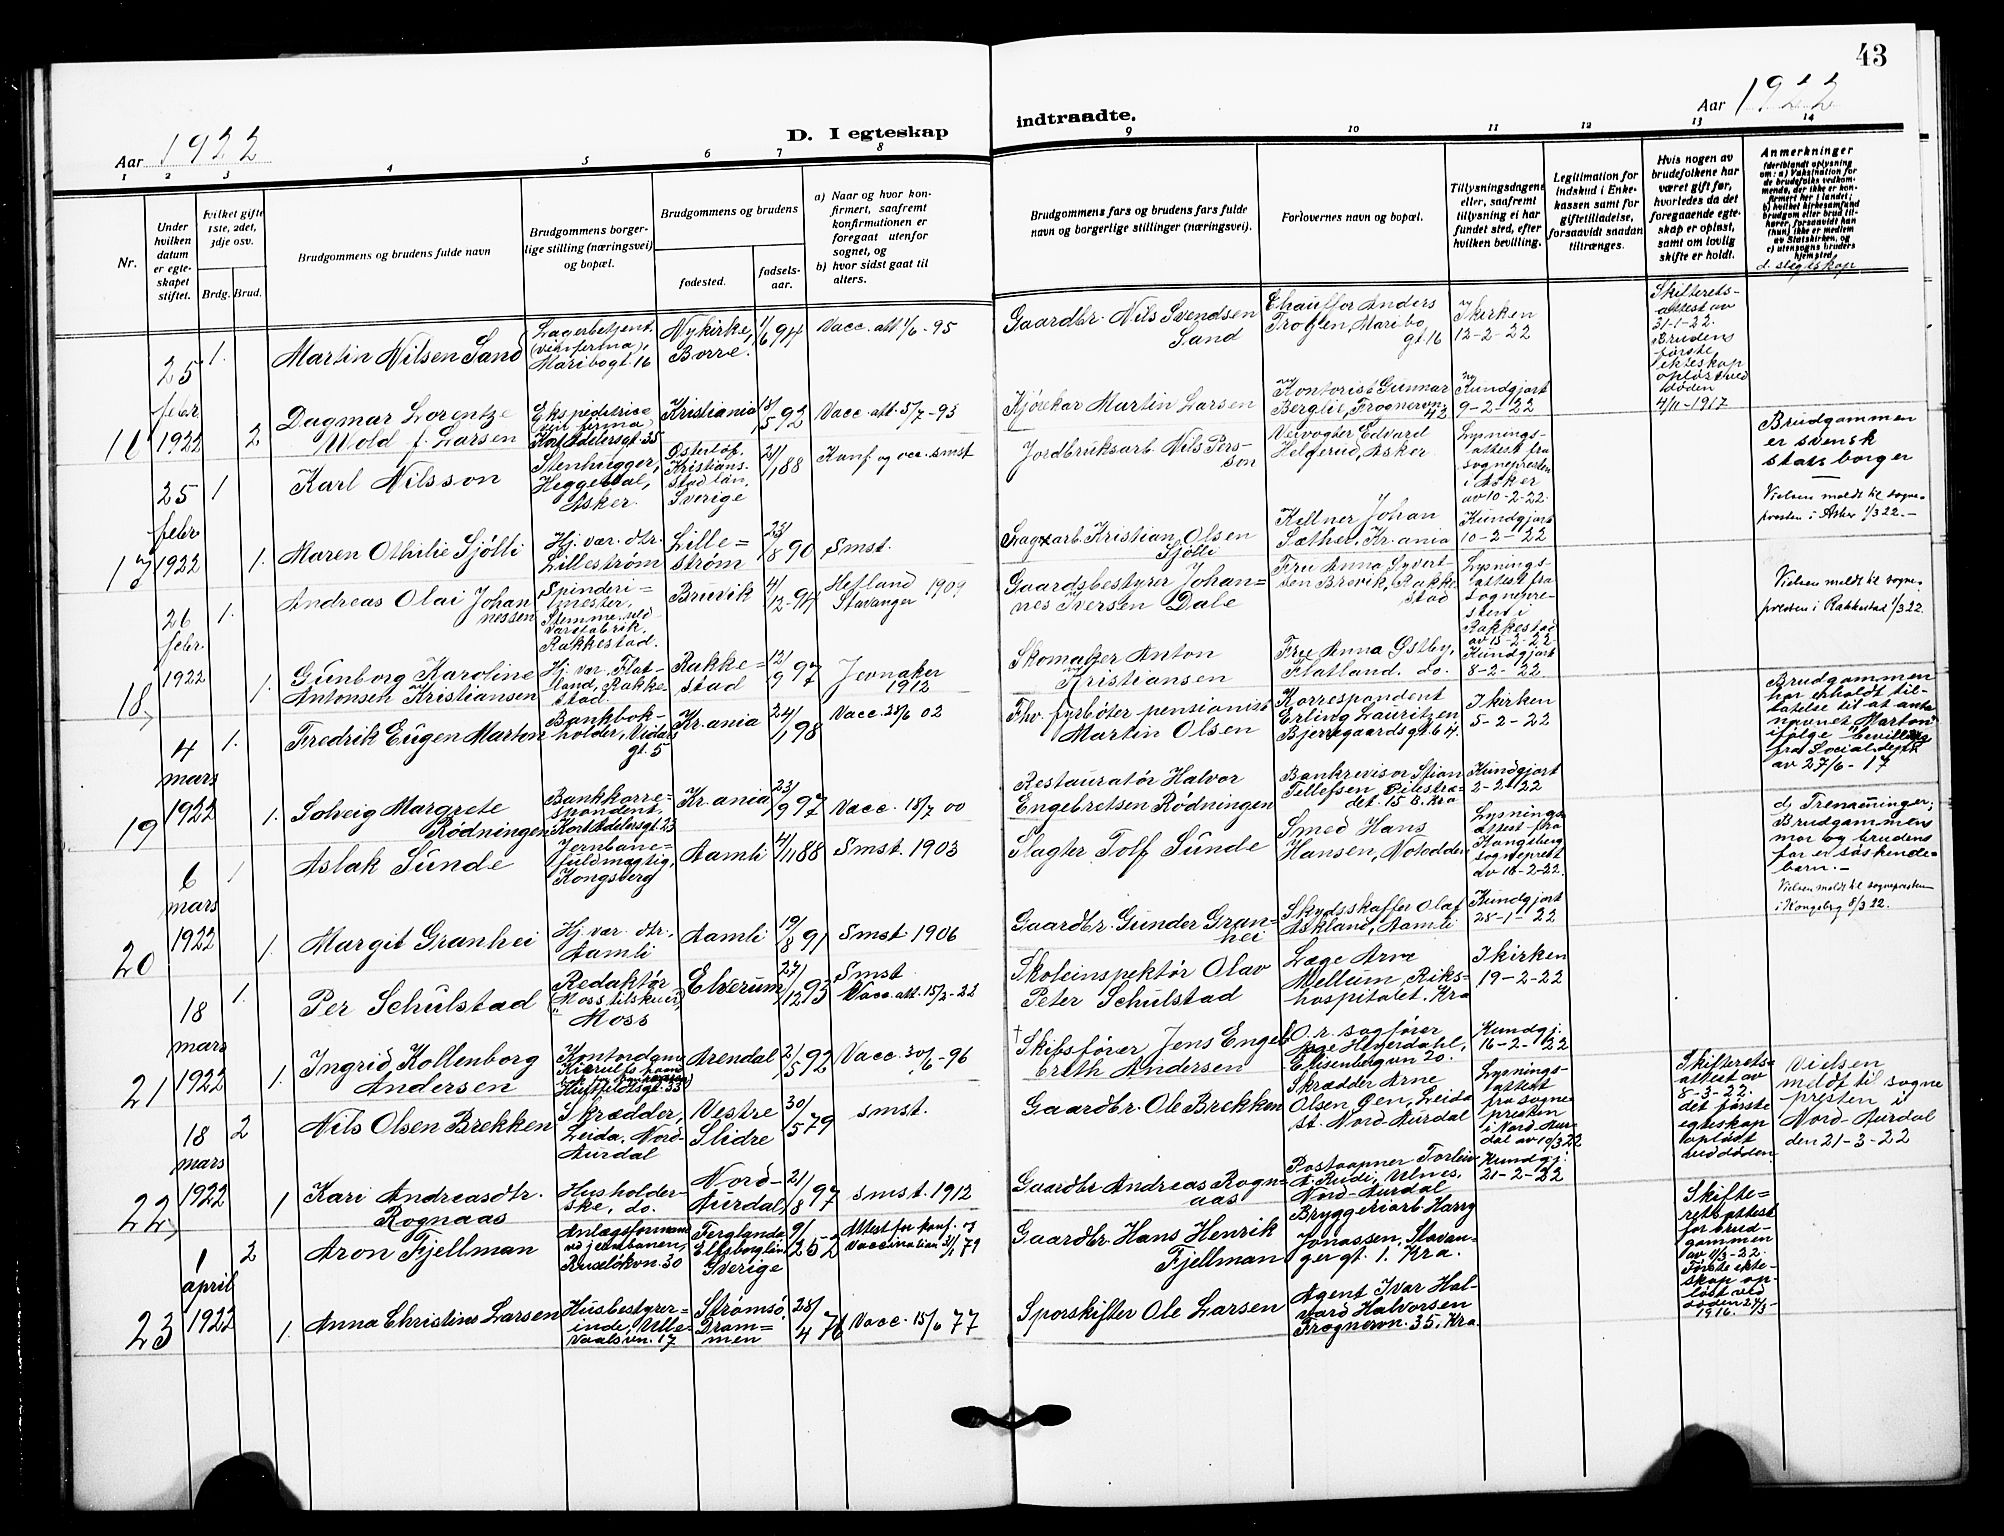 43
Aar 1922
D. I egteskap
indtraadte.
Aar 1922
1 2 3 4 5 6 7 8 9 10 11 12 13 14
Nr.
Under hvilken datum er egteskapet stiftet.
Hvilket gifte 1ste, 2det, 3dje osv.
Brdg. Brud.
Brudgommens og brudens fulde navn
Brudgommens borgerlige stilling (næringsvei) og bopæl.
Brudgommens og brudens
fødested.
fødselsaar.
a) Naar og hvor konfirmert, saafremt konfirmationen er foregaat utenfor sognet, og
b) hvor sidst gaat til alters.
Brudgommens fars og brudens fars fulde navn og borgerlige stillinger (næringsvei).
Forlovernes navn og bopæl.
Tillysningsdagene eller, saafremt tillysning ei har fundet sted, efter hvilken bevilling.
Legitimation for indskud i Enkekassen samt for giftetilladelse, forsaavidt saadan tiltrænges.
Hvis nogen av brudefolkene har været gift før, hvorledes da det foregaaende egteskap er opløst, samt om lovlig skifte er holdt.
Anmerkninger
d. slegtskap
25 febr 1922
1.
Martin Nilsen Sand
Lagerbetjent
Maribogt. 16
Nykirke, Borre.
1/6 94
Vacc. att. 1/6-95
Gaardbr. Nils Svendsen Sand
Chauffør Anders Maribogt 16
I kirken
12-2-22
Skifteretsattest av 31-1-22.
Brudens første ekteskap opløst ved døden 4/11-1917
2
Dagmar Lorentze Wold f. Larsen
Ekspeditrice
Kristiania
92
Vacc. att. 5/7-93
Kjørekar Martin Larsen
Kontorist Gunnar
Kundgjort
9-2-22
25 febr 1922
1
Karl Nilsson
Stenhugger, Heggedal, Asker.
Kristiansstad län, Sverige
21/1 88
Konf. og vcc. smst
Jordbruksarb. Nils Persson
Veivogter Edvard Helgerud, Asker
Lysningsattest fra sognepresten i Asker av 10-2-22.
Brudgammen er svensk statsborger
Vielsen meldt til sognepresten i Asker 1/3 22.-
1.
Maren Othilie Sjølli
Hj. vær. dtr. Lillestrøm
Lillestrøm
23/8 90
Smst.
Kristian Olsen Sjølli
Kellner Johan Sæther, Kr.ania
Kundgjort
10-2-22
18
26 febr. 1922
1.
Andreas Olai Johannessen
Spinderimester,
Rakkestad.
Bruvik
4/12-94
Hetland Stavanger 1909
Gaardsbestyrer Johannes Iversen Dale
Fru Anna Syvertsen Brevik, Rakkestad
Lysningsattest fra sognepresten i Rakkestad av 15-2-22.
Vielsen meldt til sognepresten i Rakkestad 1/3 22.
1.
Gunborg Karoline Antonsen Kristiansen
Hj. vær. Flatland, Rakkestad
Rakkestad
12/9 97
Jevnaker 1912
Skomaker Anton Kristiansen
Fru Anna Østby, Flatland. do.
Kundgjort
8-2-22
19
4 mars 1922
1.
Fredrik Eugen Marton
Bankbokholder, Vidarsgt. 5
Kr.ania
24/1 98
Vacc. 28/6 02
Fhv. fyrbøter pensionist Martin Olsen
Korrespondent Erling Lauritzen, Bjerregaardsgt 64.
I kirken
5-2-22
Brudgammen har erholdt tillatelse til at anta navnet "Marton" ifølge bevilling fra Social.dept. av 27/6-17
1.
Solveig Margrete Rødningen
Bankkorrespondent, Kort Adelersgt. 23
Kr.ania
23/9 97
Vacc. 18/7 00
Restauratør Halvor Engebretsen Rødningen
Bankrevisor Stian Tellefsen, Pilestrædet. 15 B. Kra
Kundgjort
2-2-22
20
6 mars 1922
1
Aslak Sunde
Jernbanefuldmægtig, Kongsberg
Aamli
4/11 88
Smst. 1903
Slagter Tolf Sunde
Smed Hans Hansen, Notodden
Lysningsattest fra Kongsberg sogneprest av 18-2-22.
d) Tremenninger; Brudgammens mor og brudens far er søskendebarn.-
Vielsen meldt til sognepresten i Kongsberg 8/3 22.
1.
Margit Granhei
Hj. vær. dtr. Aamli
Aamli
19/8 91
Smst 1906
Gaardbr. Gunder Granhei
Skydsskaffer Olaf Askland, Aamli
Kundgjort
25-1-22
21
18 mars 1922
1.
Per Schulstad
Redaktør
Moss
Elverum
27/12 93
Smst
Vacc. att. 15/2-22
Skoleinspektør Olav Peter Schulstad
Læge Arne Mellum, Rikshospitalet. Kra
I kirken
19-2-22
1.
Ingrid Kollenborg Andersen
Kontordame
Arendal
2/5 92
Vacc. 30/6-96
† Skibsfører Jens Engelbreth Andersen
O.r. sagfører
Elisenbergvn 20.
Kundgj.
16-2-22
22,
18 mars 1922
2
Nils Olsen Brekken
Skrædder, Leida. Nord-Aurdal
Vestre Slidre
30/5 79
smst.
Gaardbr. Ole Brekken
Skrædder Arne Olsen Øen, Leida st. Nord-Aurdal
Lysningsattest fra sognepresten i Nord-Aurdal av 10/3 22
Skifteretsattest av 8-3-22.
det første egteskap opløst ved døden.
Vielsen meldt til sognepresten i Nord-Aurdal den 21-3-22
1
Kari Andreasdtr. Rognaas
Husholderske, do.
Nord-Aurdal,
21/8 97
smst. 1912
Gaardbr Andreas Rognaas
Postaapner Torleiv A. Rudi, Ulnes, Nord-Aurdal
Kundgj.
21-2-22
23
1 april 1922
2
Aron Fjellman
Anlægsformand ved jernbanen, Ruseløkvn. 30
Sverige
9/2 52
Attest for konf. og vaccination
Gaardbr. Hans Henrik Fjellman
Bryggeriarb Harry Jonassen, Stavangergt. 1. Kra.
Skifterettsattest for brudgammen av 1/3-22.
Første ekteskap opløst ved døden 1916.
1.
Anna Christine Larsen
Husbestyrerinde, Ullevaalsvn. 17
Strømsø, Drammen
28/4 76
Vacc. 15/6 77
Sporskifter Ole Larsen
Agent Ivar Halvard Halvorsen Frognervn. 35. Kra.